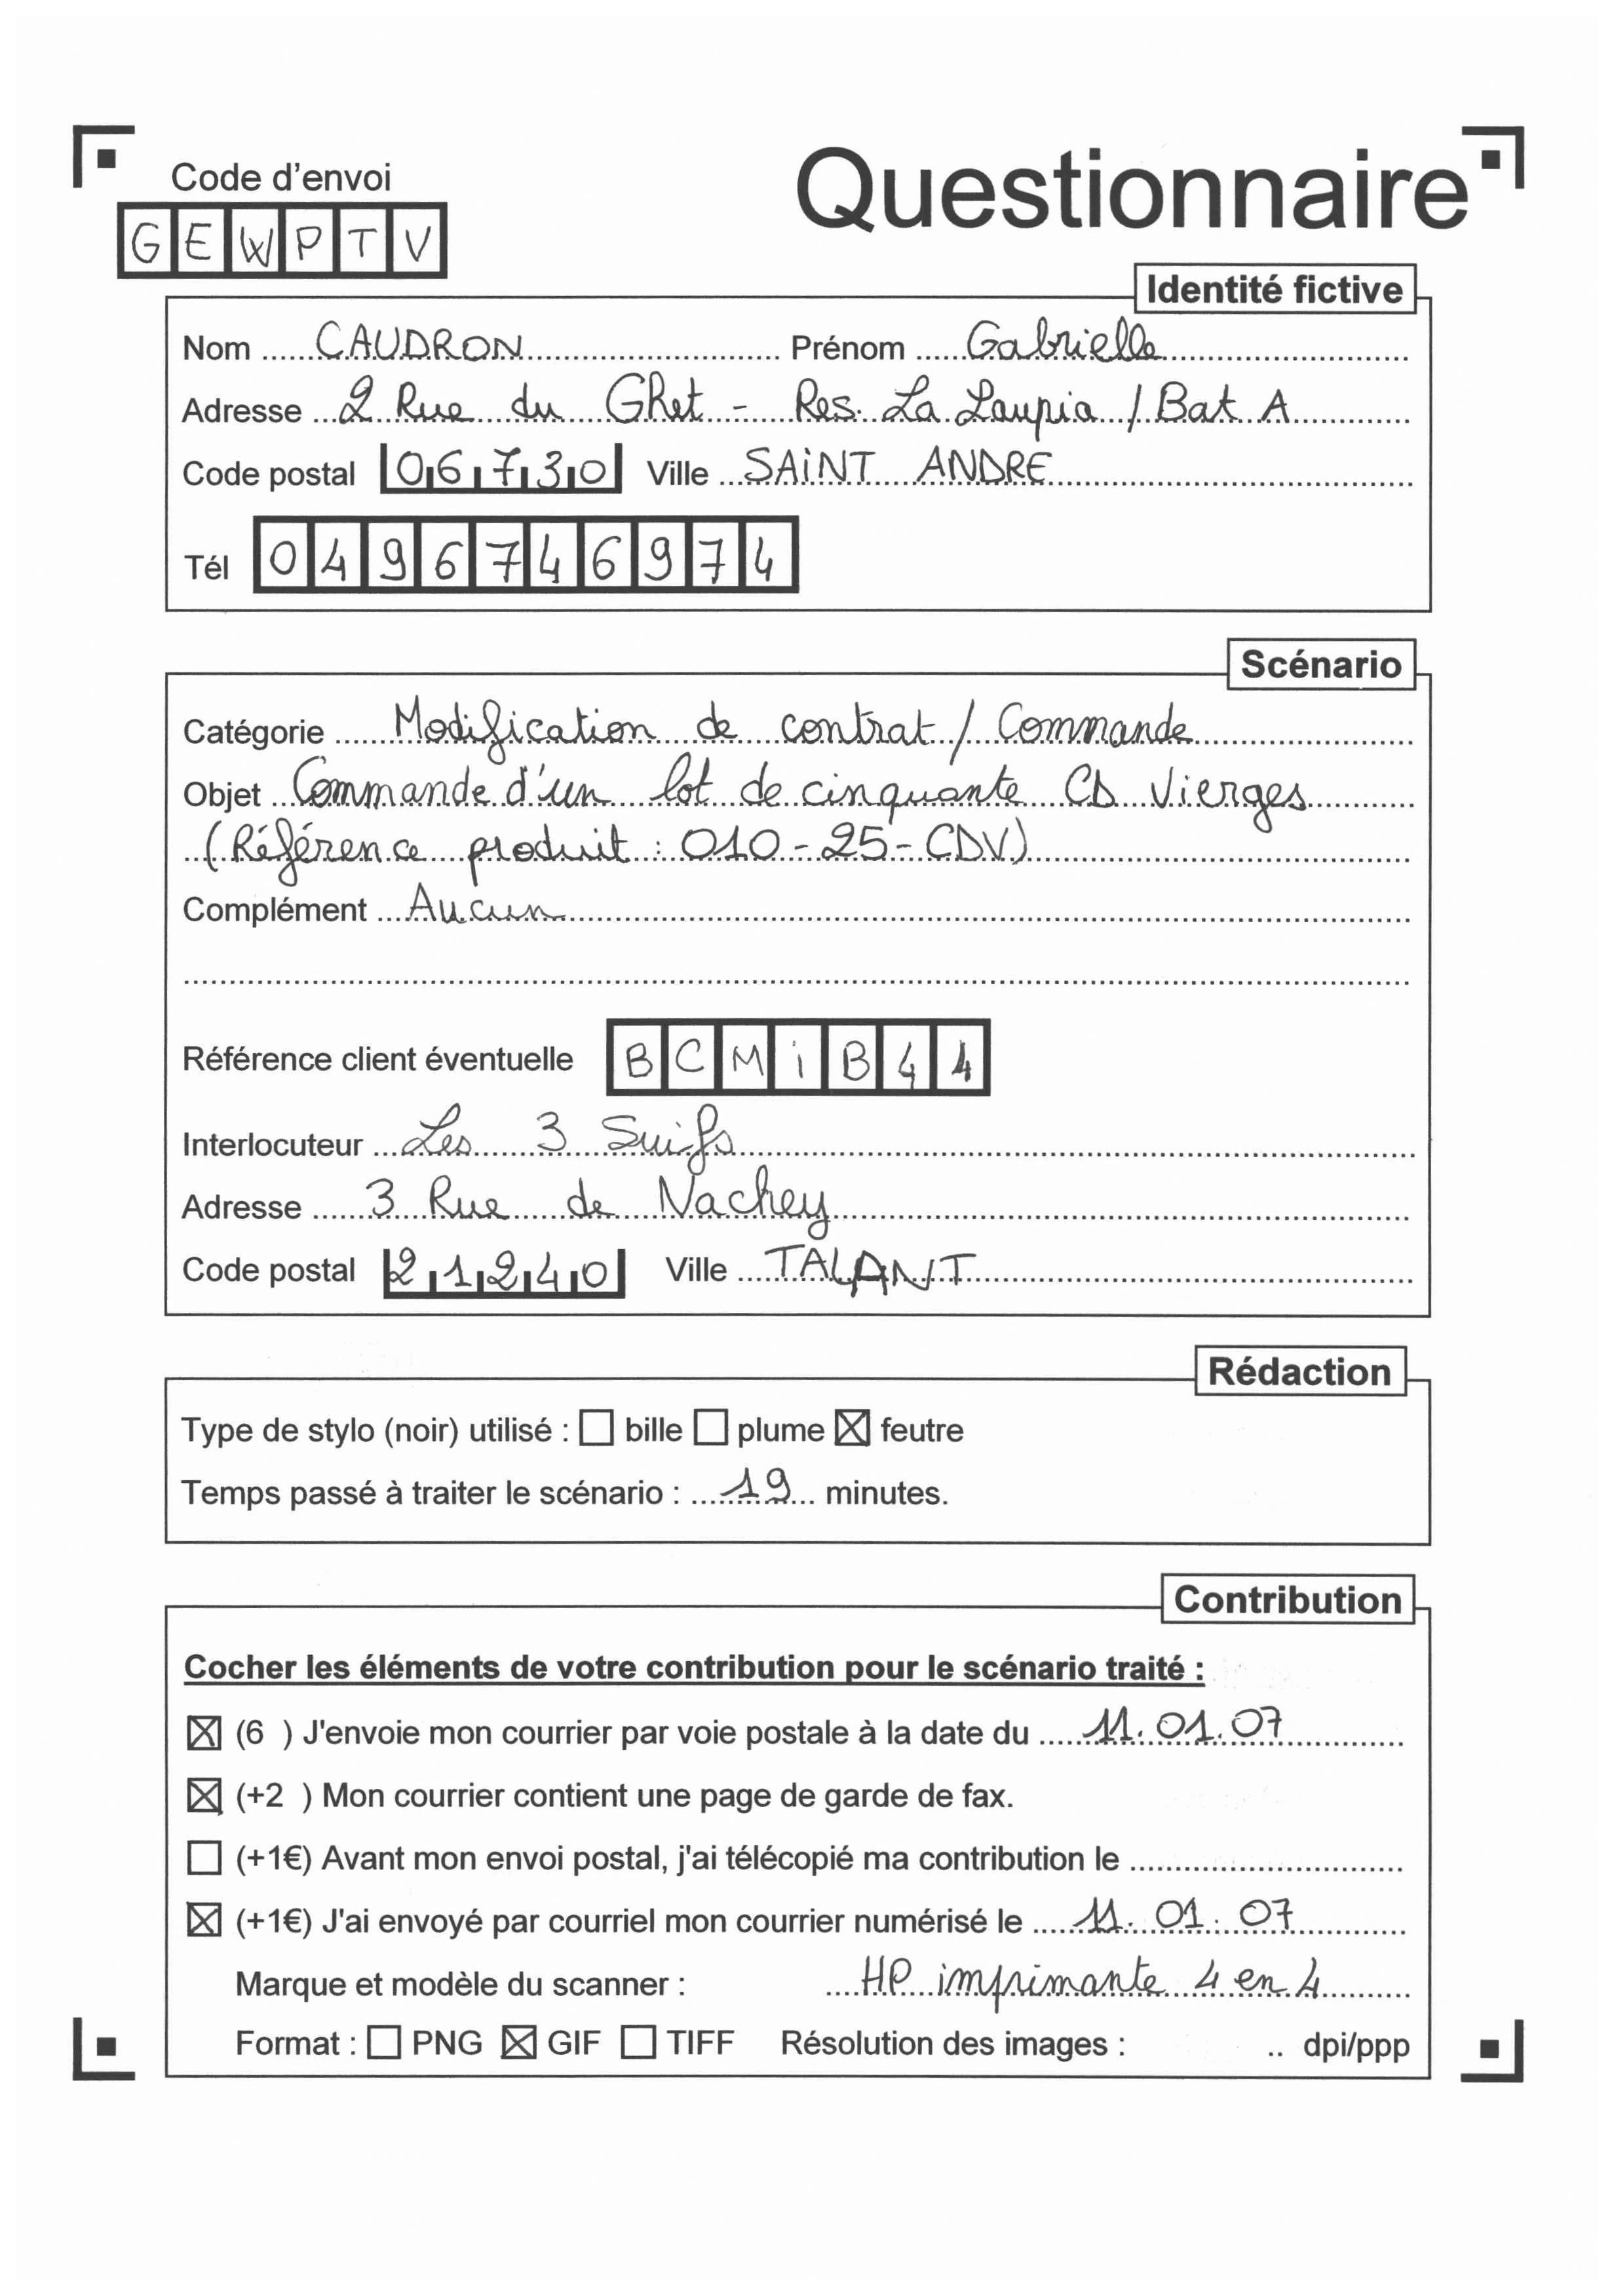 Code d'envoi
Questionnaire
GEWPTV
Identité fictive
Nom ...... CAUDRON ...... Prénom ...... Gabrielle ......
Adresse ... 2 Rue du Ghet - Res. La Laupia / Bat A ......
Code postal 06730 Ville ... SAiNT ANDRE ......
Tél 0496746974
Scénario
Catégorie ...... Modification de contrat / Commande ......
Objet ... Commande d'un lot de cinquante CD Vierges ......
(Référence produit : 010-25-CDV) ......
Complément ... Aucun ......
Référence client éventuelle BCMiB44
Interlocuteur ... Les 3 Suifs ......
Adresse ...... 3 Rue de Nachey ......
Code postal 21240 Ville ... TALANT ......
Rédaction
Type de stylo (noir) utilisé : ☐ bille ☐ plume ☒ feutre
Temps passé à traiter le scénario : ... 19 ... minutes.
Contribution
Cocher les éléments de votre contribution pour le scénario traité :
☒ (6 ) J'envoie mon courrier par voie postale à la date du ..... 11.01.07 ......
☒ (+2 ) Mon courrier contient une page de garde de fax.
☐ (+1€) Avant mon envoi postal, j'ai télécopié ma contribution le ......
☒ (+1€) J'ai envoyé par courriel mon courrier numérisé le ..... 11.01.07 ......
Marque et modèle du scanner : .... HP imprimante 4 en 4 ......
Format : ☐ PNG ☒ GIF ☐ TIFF Résolution des images : .. dpi/ppp